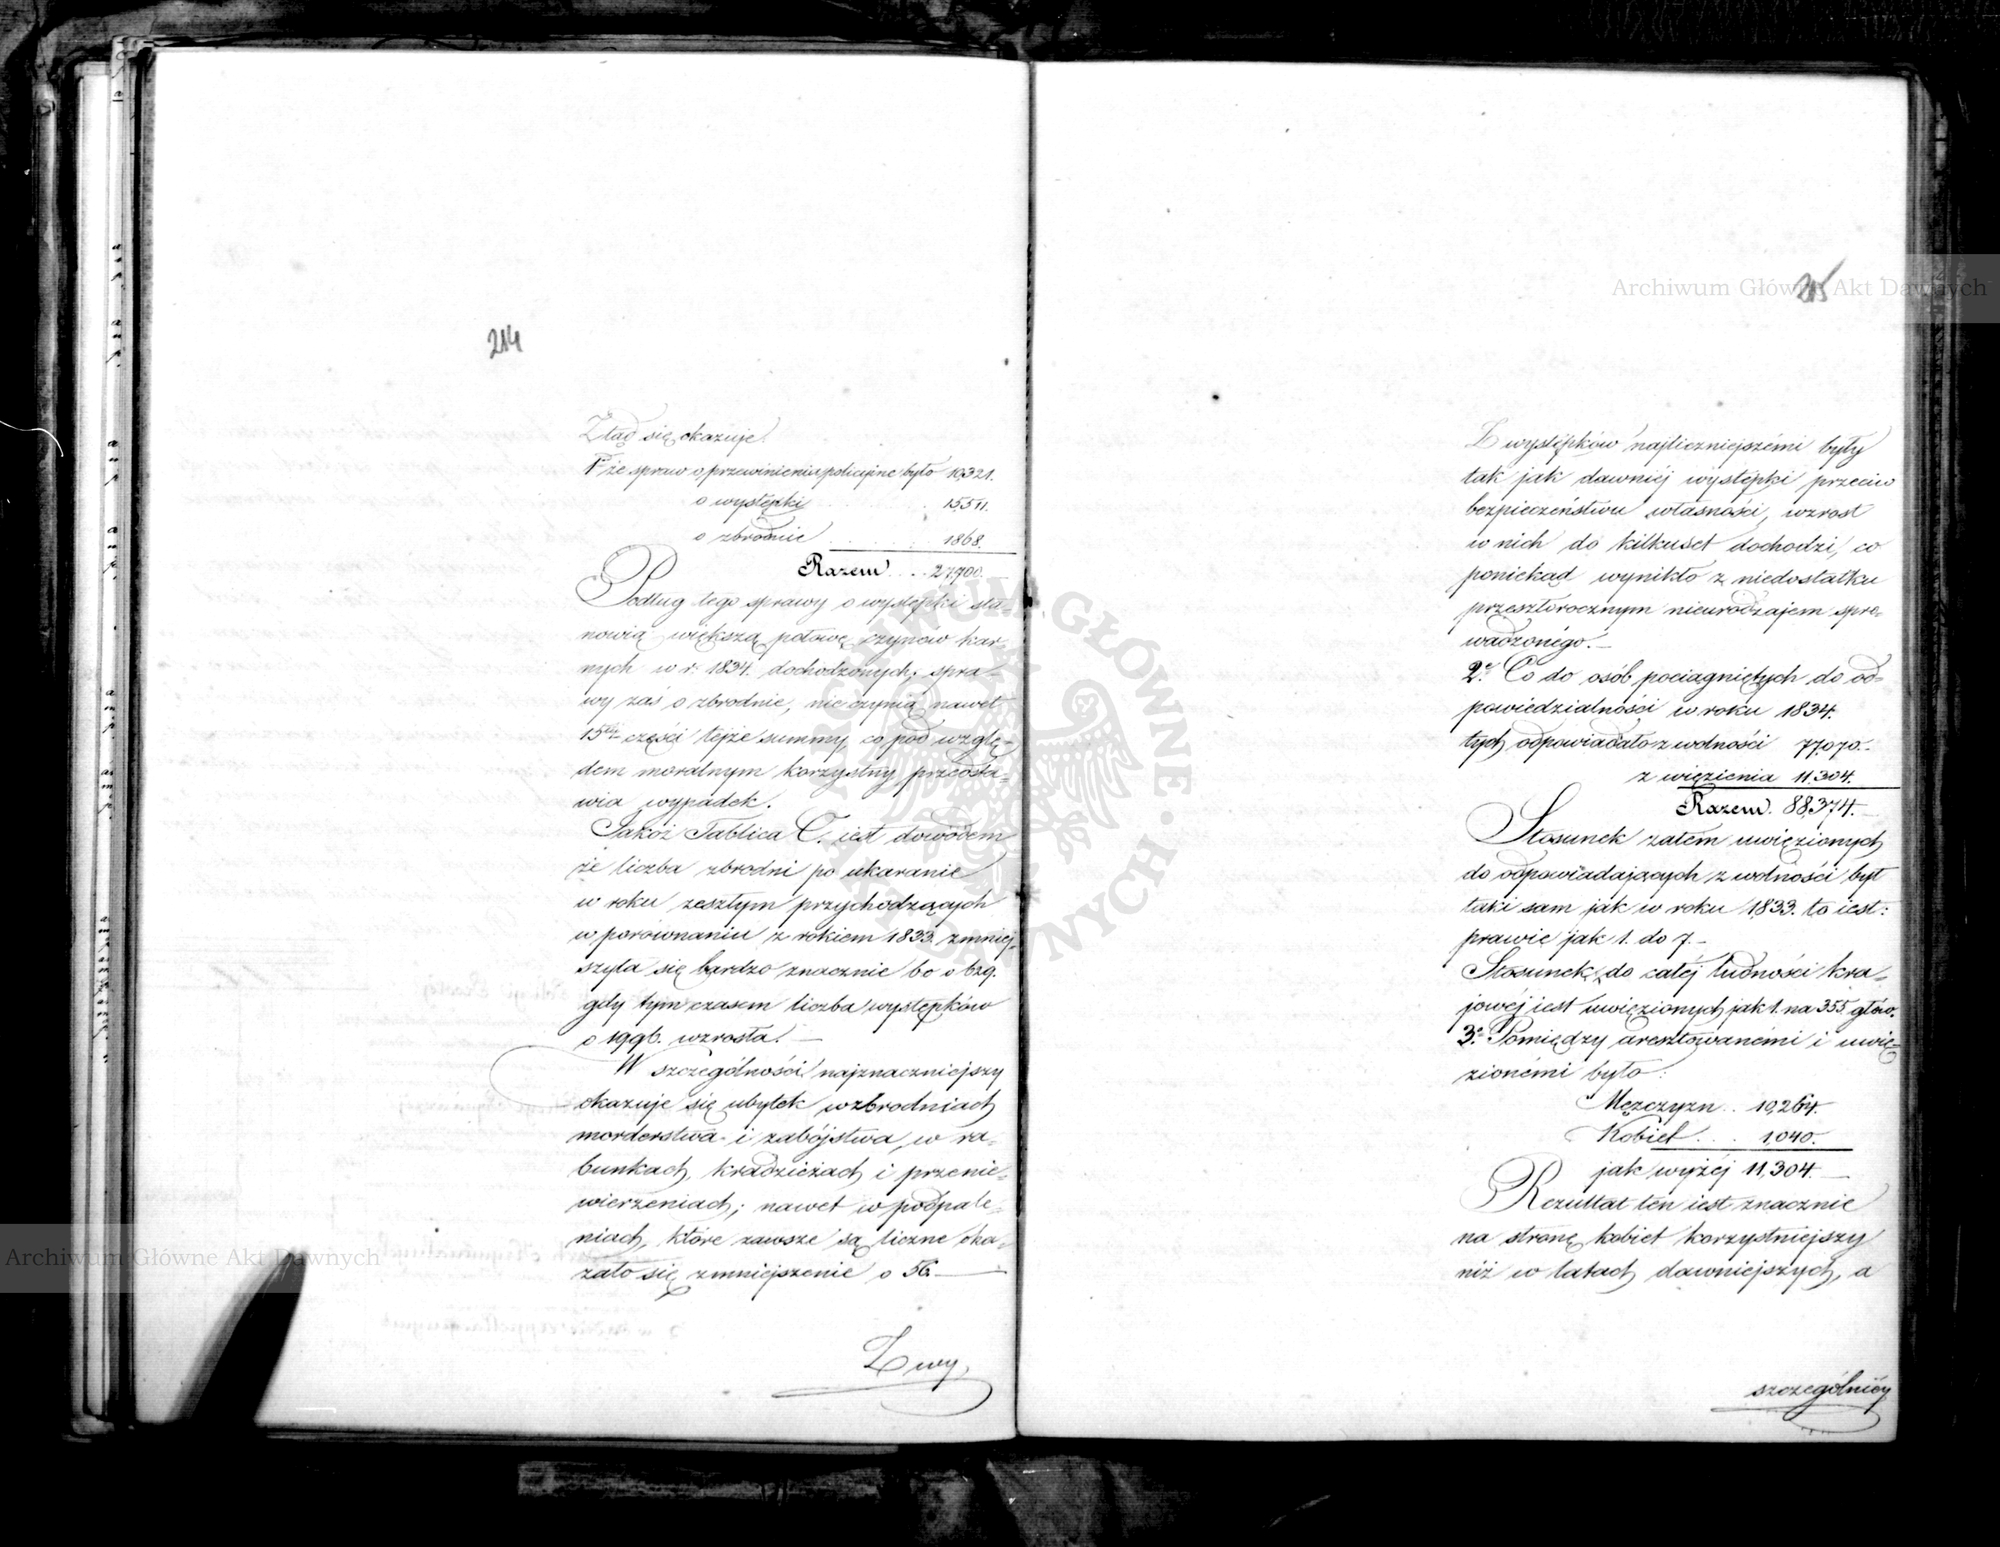 214
Ztąd się okazuje.
1° że spraw o przewinienia policyjne było 10,321.
o występki . . . . . . 15,511.
o zbrodnie . . . . . . 1868.
Razem . . . 27,700.
Podług tego sprawy o występki sta-
nowią większą połowę czynów kar-
nych w r. 1834. dochodzonych; spra-
wy zaś o zbrodnie, nie czynią nawet
15tej części tejże summy, co pod wzglę-
dem moralnym korzystny przedsta-
wia wypadek.
Jakoż Tablica C. iest dowodem
że liczba zbrodni po ukaranie
w roku zeszłym przychodzących
w porównaniu z rokiem 1833. zmniej-
szyła się bardzo znacznie bo o 629.
gdy tym czasem liczba występków
o 1996. wzrosła. —
W szczególności najznaczniejszy
okazuje się ubytek w zbrodniach
morderstwa i zabójstwa, w ra-
bunkach, kradzieżach i przenie-
wierzeniach; nawet w podpale-
niach, które zawsze są liczne oka-
zało się zmniejszenie o 56. —
Z wy,
215
Z występków najliczniejszémi były
tak jak dawniéj występki przeciw
bezpieczeństwu własności, wzrost
w nich do kilkuset dochodzi, co
poniekąd wynikło z niedostatku
przeszłorocznym nieurodzajem spro-
wadzonégo. —
2° Co do osób pociągniętych do od-
powiedzialności w roku 1834.
tych odpowiadało z wolności 77,070. —
z więzienia 11,304.
Razem. 88,374. —
Stosunek zatém uwięzionych
do odpowiadających z wolności był
taki sam jak w roku 1833. to iest:
prawie jak 1. do 7. —
Stosunek do całéj ludności kra-
jowéj iest uwięzionych jak 1. na 355. głów.
3° Pomiędzy aresztowanémi i uwię-
zionémi było:
Męzczyzn . . 10,264.
Kobiet . . . 1,040.
jak wyżéj 11,304. —
Rezultat ten iest znacznie
na stronę kobiet korzystniejszy
niż w latach dawniejszych, a
szczególniéy
Archiwum Główne Akt Dawnych
Archiwum Główne Akt Dawnych